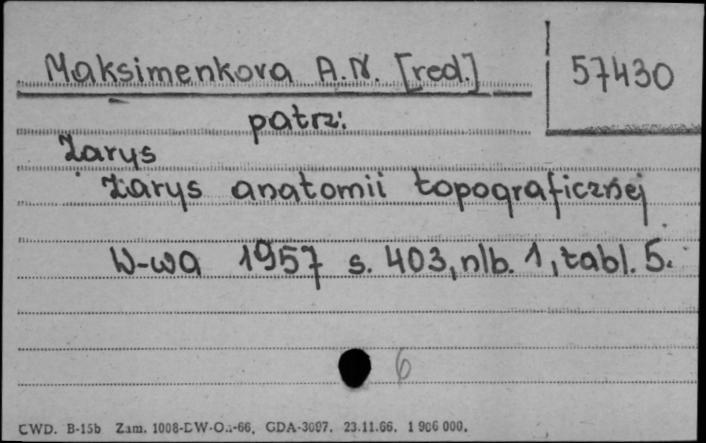 Maksimenkova A.N. [red.] 57430
patrz:
Zarys
Zarys anatomii topograficznej
W-wa 1957 s. 403, nlb. 1, tabl. 5.
6
CWD. B-15b Zam. 1008-DW-Oa-66. GDA-3097. 23.11.66. 1 906 000.